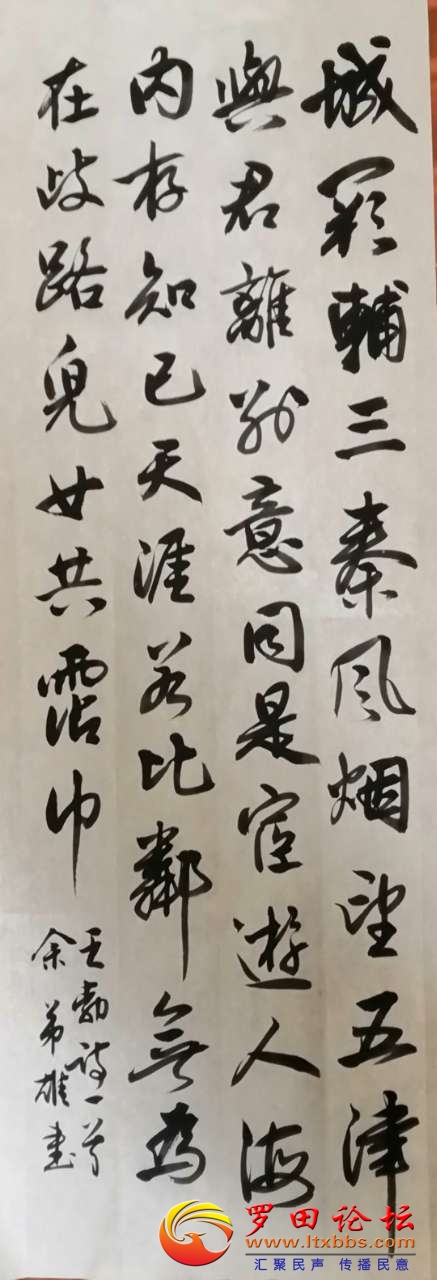 城阙辅三秦风烟望五津
與君離别意同是宦遊人海
内存知己天涯若比鄰無為
在歧路兒女共霑巾
王勃诗一首
余弟雄书
罗田论坛
www.ltxbbs.com
汇聚民声 传播民意